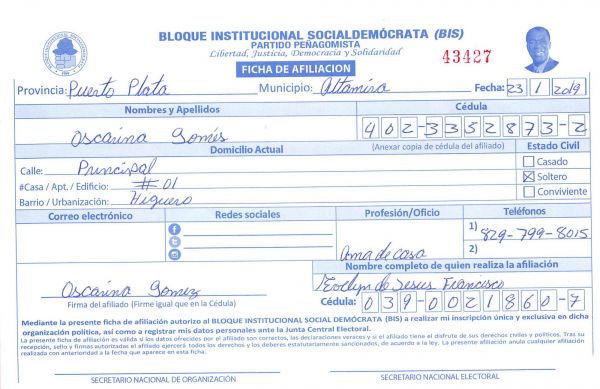 BLOQUE INSTITUCIONAL SOCIALDEMÓCRATA (BIS)
PARTIDO PEÑAGOMISTA
Libertad, Justicia, Democracia y Solidaridad
43427
FICHA DE AFILIACION
Provincia: Puerto Plata Municipio: Altamira Fecha: 23 1 2019
Nombres y Apellidos Cédula
Oscarina Gomés 402-3352873-2
Domicilio Actual (Anexar copia de cédula del afiliado) Estado Civil
Calle: Principal Casado
#Casa / Apt. / Edificio: # 01 Soltero
Barrio / Urbanización: Higuero Conviviente
Correo electrónico Redes sociales Profesión/Oficio Teléfonos
1) 829-799-8015
2)
Ama de casa
Nombre completo de quien realiza la afiliación
Oscarina Gomez Evelyn de Jesus Francisco
Firma del afiliado (Firme igual que en la Cédula) Cédula: 039-0021860-7
Mediante la presente ficha de afiliación autorizo al BLOQUE INSTITUCIONAL SOCIAL DEMÓCRATA (BIS) a realizar mi inscripción única y exclusiva en dicha
organización política, así como a registrar mis datos personales ante la Junta Central Electoral.
La presente ficha de afiliación es válida si los datos ofrecidos por el afiliado son correctos, las declaraciones veraces y si el afiliado tiene el disfrute de sus derechos civiles y políticos. Tras su
recepción, sello y firmas autorizadas el afiliado ejercerá todos los derechos y los deberes estatutariamente sancionados, de acuerdo a la ley. La presente afiliación anula cualquier afiliación
realizada con anterioridad a la fecha que aparece en esta ficha.
SECRETARIO NACIONAL DE ORGANIZACIÓN SECRETARIO NACIONAL ELECTORAL